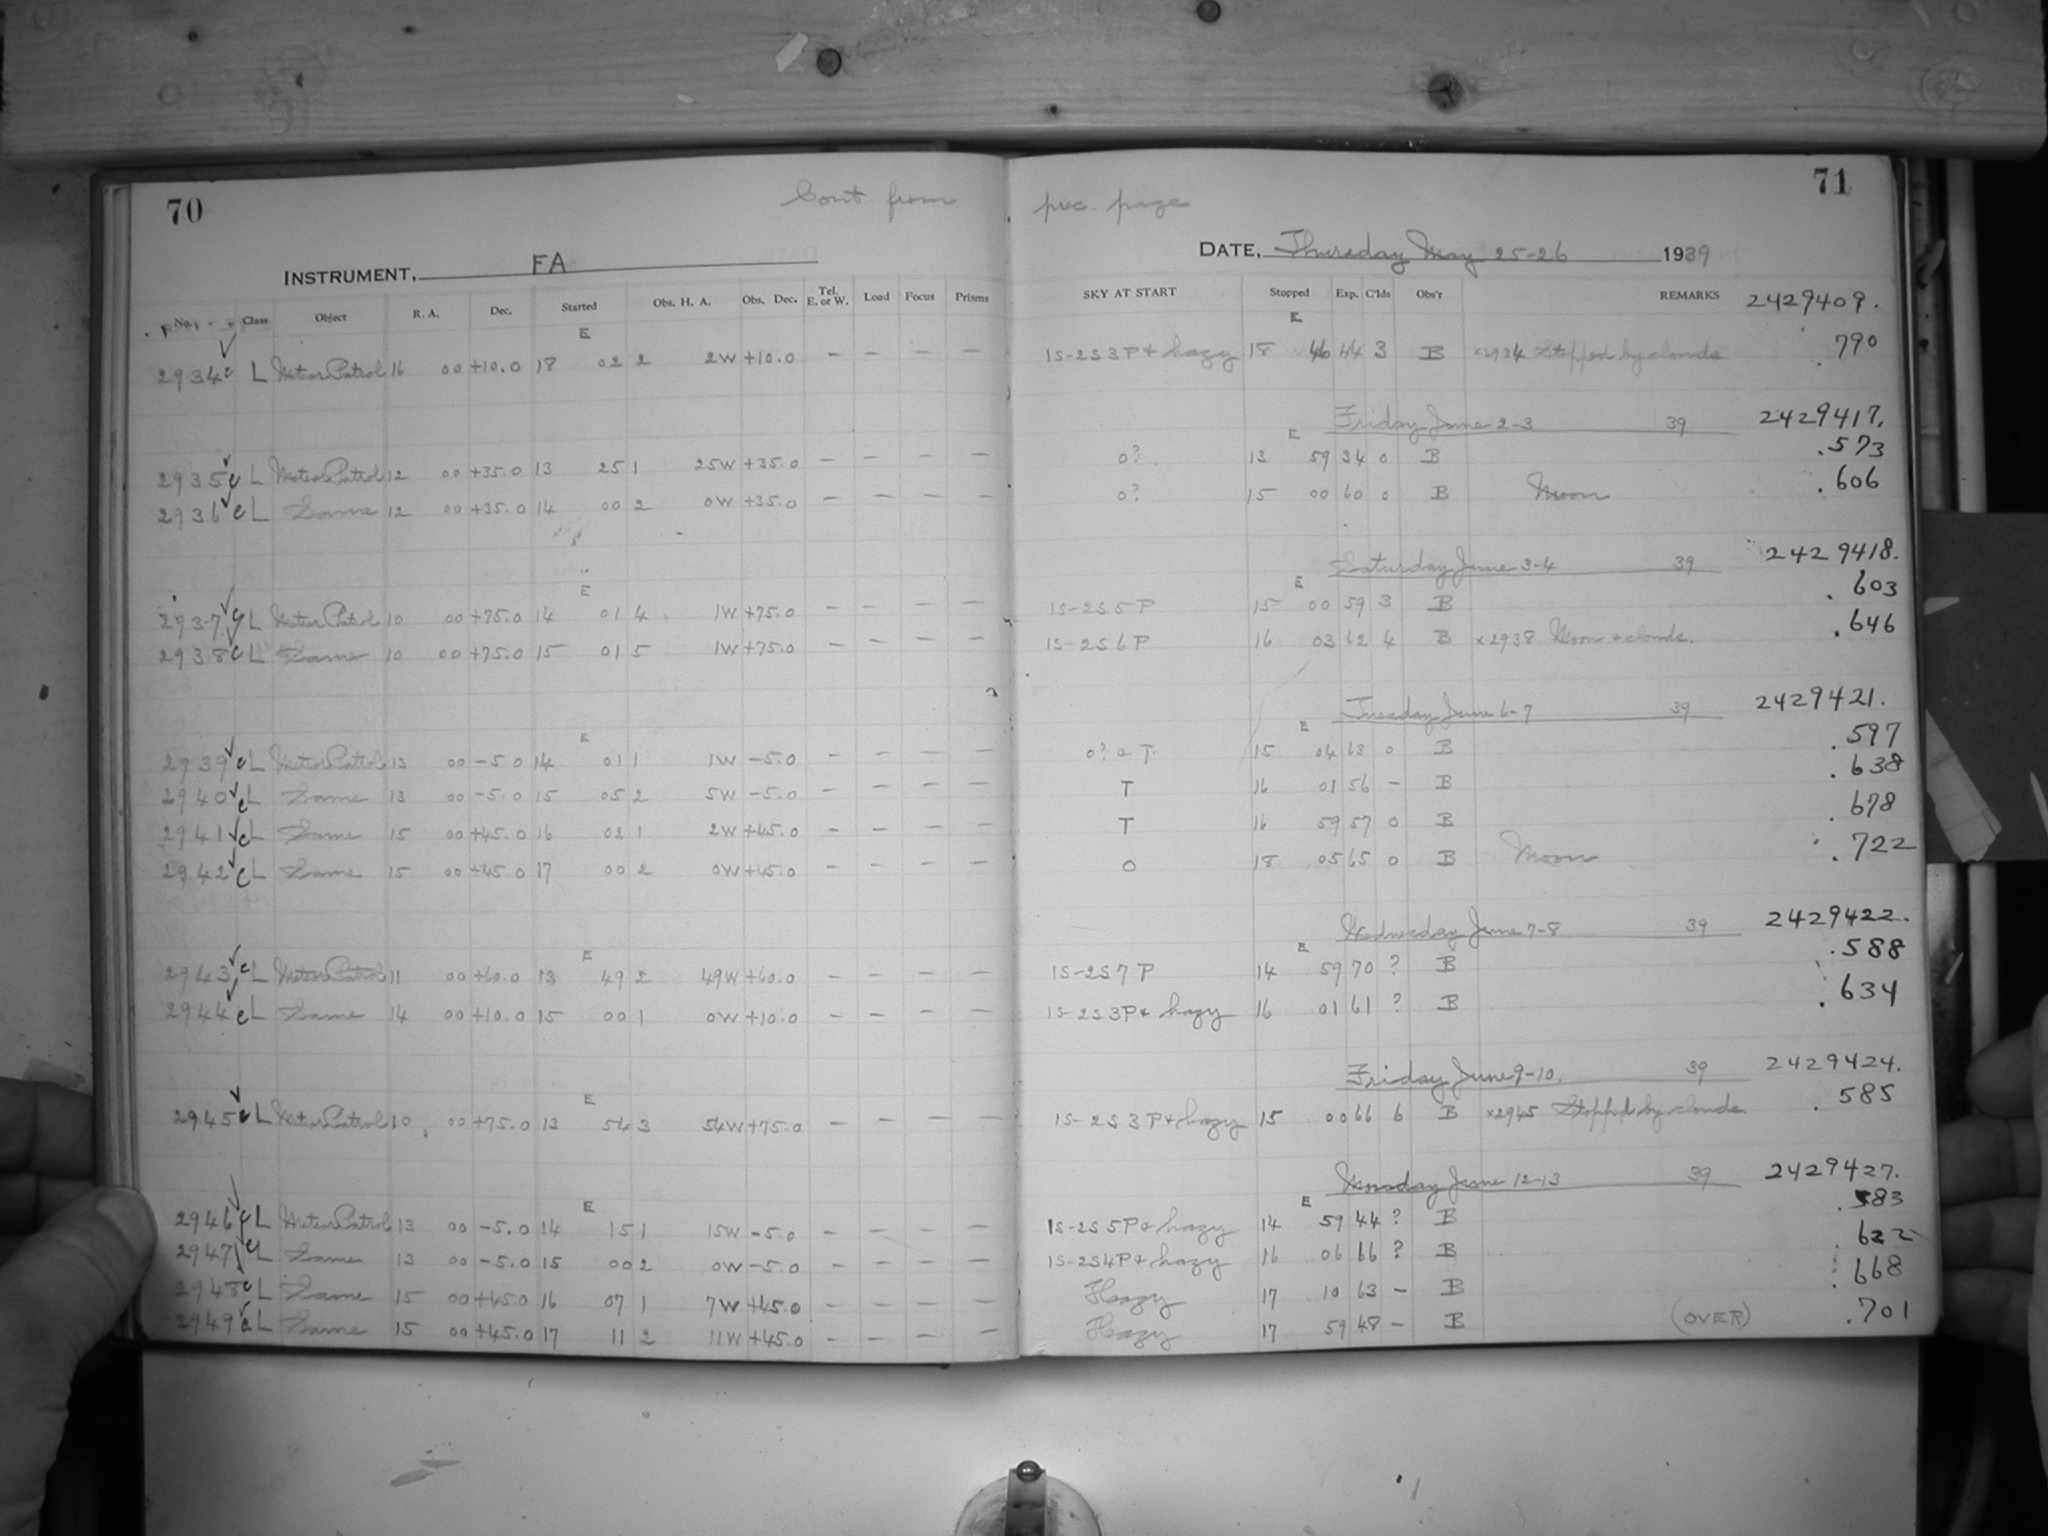 70
Cont. from prec. page
71
INSTRUMENT, FA
DATE, Thursday May 25-26 1939
No. Class Object R. A. Dec. Started Obs. H. A. Obs. Dec. Tel. E. or W. Load Focus Prisms SKY AT START Stopped Exp. C'lds Obs'r REMARKS 2429409.
E E
2934 c L Meteor Patrol 16 00 +10.0 18 02 2 2W +10.0 – – – – 1S-2S3P+ hazy 18 46 44 3 B x2934 Stopped by clouds .790
Friday June 2-3 39 2429417.
E
2935 c L Meteor Patrol 12 00 +35.0 13 25 1 25W +35.0 – – – – 0? 13 59 34 0 B .573
2936 c L Same 12 00 +35.0 14 00 2 0W +35.0 – – – – 0? 15 00 60 0 B Moon .606
Saturday June 3-4 39 2429418.
E E
2937 c L Meteor Patrol 10 00 +75.0 14 01 4 1W +75.0 – – – – 1S-2S5P 15 00 59 3 B .603
2938 c L Same 10 00 +75.0 15 01 5 1W +75.0 – – – – 1S-2S6P 16 03 62 4 B x2938 Moon & clouds. .646
Tuesday June 6-7 39 2429421.
E E
2939 c L Meteor Patrol 13 00 -5.0 14 01 1 1W -5.0 – – – – 0? & T. 15 04 63 0 B .597
2940 c L Same 13 00 -5.0 15 05 2 5W -5.0 – – – – T 16 01 56 – B .638
2941 c L Same 15 00 +45.0 16 02 1 2W +45.0 – – – – T 16 59 57 0 B .678
2942 c L Same 15 00 +45.0 17 00 2 0W +45.0 – – – – 0 18 05 65 0 B Moon .722
Wednesday June 7-8 39 2429422.
E E
2943 c L Meteor Patrol 11 00 +60.0 13 49 2 49W +60.0 – – – – 1S-2S7P 14 59 70 ? B .588
2944 c L Same 14 00 +10.0 15 00 1 0W +10.0 – – – – 1S-2S3P+ hazy 16 01 61 ? B .634
Friday June 9-10. 39 2429424.
E
2945 c L Meteor Patrol 10 00 +75.0 13 54 3 54W +75.0 – – – – 1S-2S3P+ hazy 15 00 66 6 B x2945 Stopped by clouds .585
Monday June 12-13 39 2429427.
E E
2946 c L Meteor Patrol 13 00 -5.0 14 15 1 15W -5.0 – – – – 1S-2S5P+ hazy 14 59 44 ? B .583
2947 c L Same 13 00 -5.0 15 00 2 0W -5.0 – – – – 1S-2S4P+ hazy 16 06 66 ? B .622
2948 c L Same 15 00 +45.0 16 07 1 7W +45.0 – – – – Hazy 17 10 63 – B .668
2949 c L Same 15 00 +45.0 17 11 2 11W +45.0 – – – – Hazy 17 59 48 – B (OVER) .701